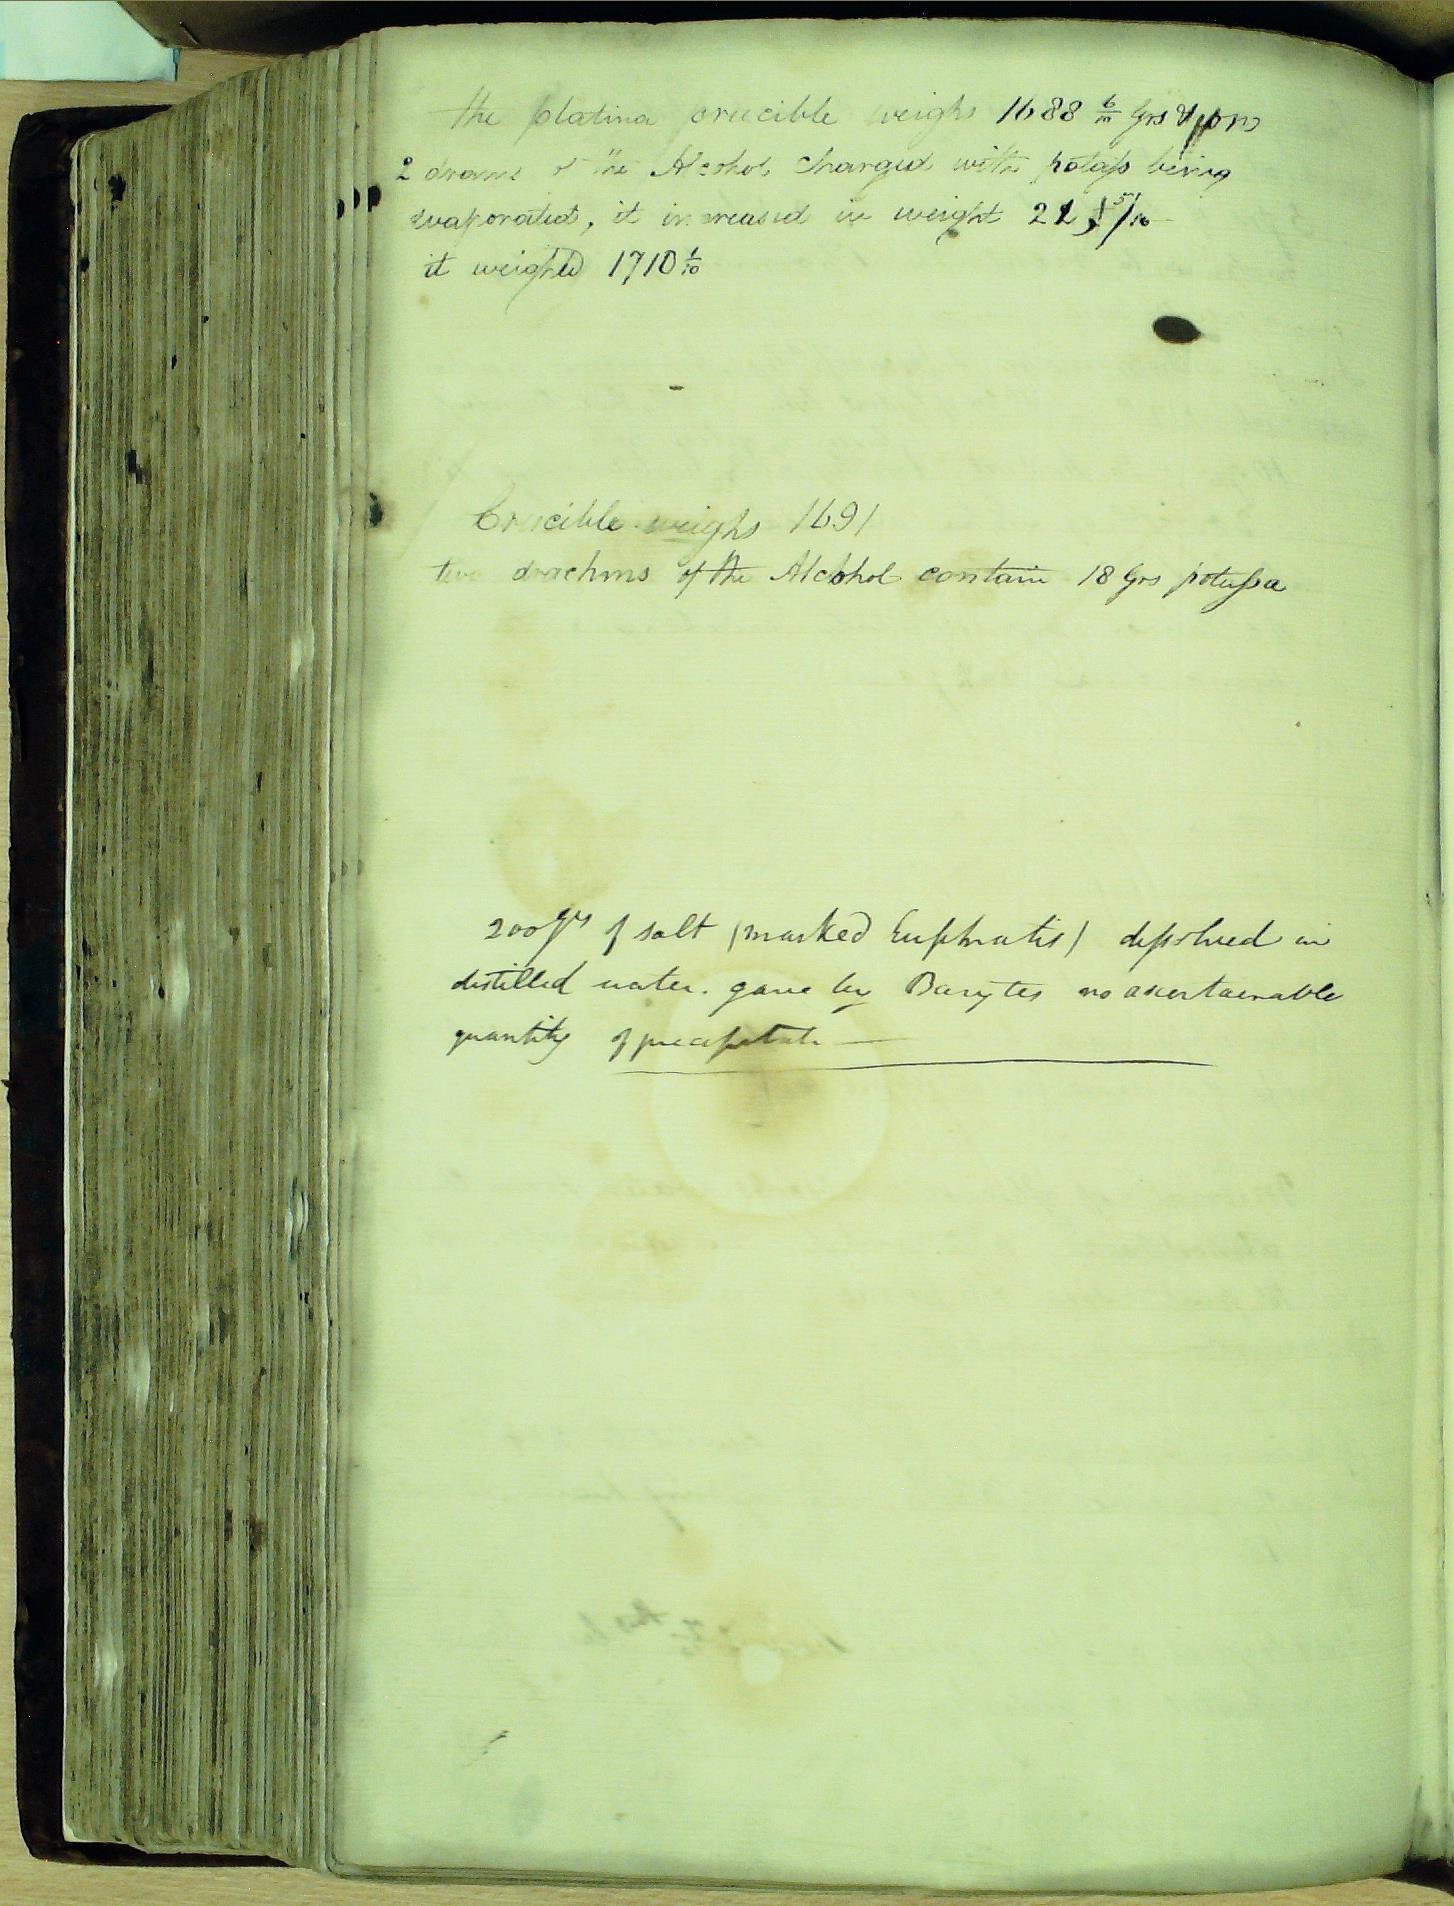 The platina crucible weighs 1688 6/10 Grs Upon
2 drams of the Alcohol charged with potass being
evaporated, it increased in weight 21, 5/10
it weighed 1710 1/10
Crucible weighs 1691
two drachms of the Alcohol contain 18 Grs potassa
200 grs of salt (marked Euphratis) dissolved in
distilled water. gave by Barytes no ascertainable
quantity of precipitate —